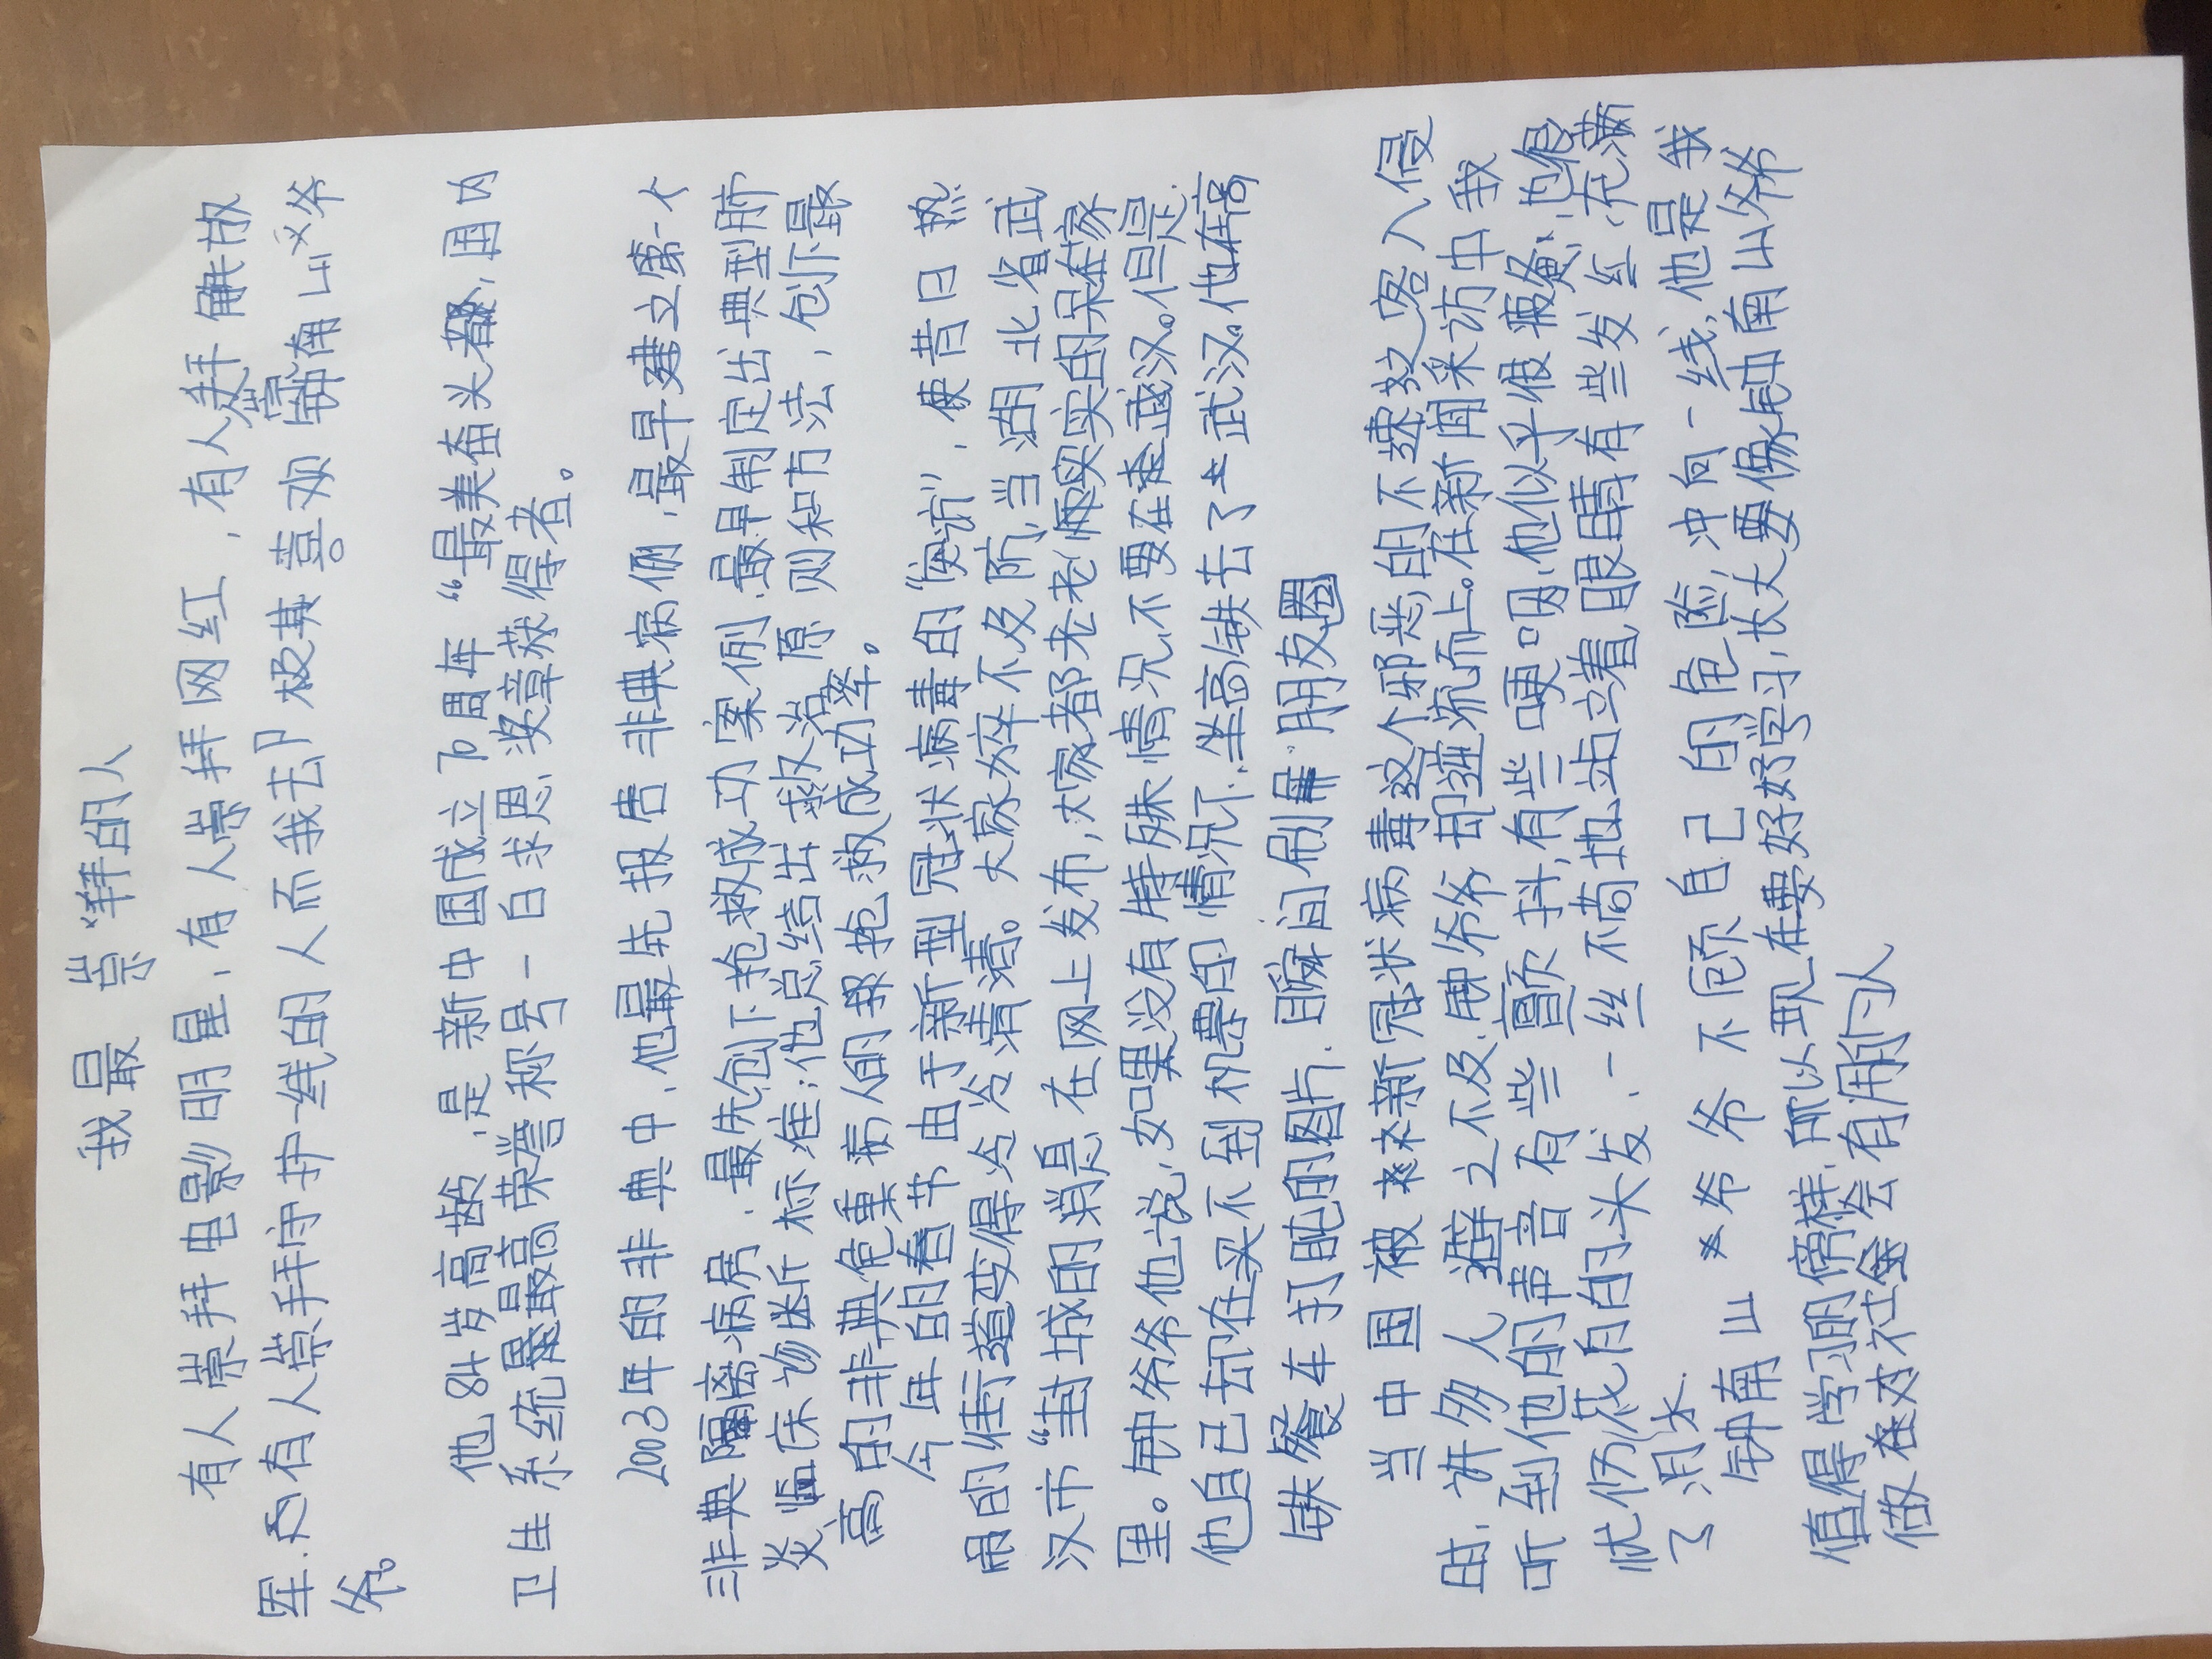 我最崇拜的人
有人崇拜电影明星，有人崇拜网红，有人崇拜解放
军，有人崇拜守护一线的人而我却极其喜欢钟南山爷
爷。
他84岁高龄，是新中国成立70周年“最美奋斗者，国内
卫生系统最高荣誉称号一白求恩奖章获得者。
2003年的非典中，他最先报告非典病例，最早建立第一个
非典隔离病房，最先创下抢救成功案例，最早制定出典型肺
炎临床诊断标准；他总结出救治原则和方法，创下最
高的非典危重病人的抢救成功率。
今年的春节由于新型冠状病毒的“突访”，使昔日热
闹的街道变得冷冷清清。大家猝不及防，当湖北省武
汉市“封城的消息在网上发布，大家都老老实实的呆在家
里。钟爷爷他说，如果没有特殊情况，不要在去武汉。但是，
他自己却在买不到机票的情况下，坐高铁去了武汉。他在高
铁餐车打盹的图片，瞬间刷屏朋友圈
当中国被新冠状病毒这个邪恶的不速之客入侵
时，许多人避之不及，钟爷爷却逆流而上。在新闻采访中我
听到他的声音有些颤抖，有些哽咽，他似乎很疲惫，也很
忧伤，花白的头发，一丝不苟地站立着，眼睛有些发红，充满
了泪水.
钟南山爷爷不顾自己的危险，冲向一线，他是我
值得学习的傍样，所以现在要好好学习，长大要像钟南山爷爷
做对社会有用的人